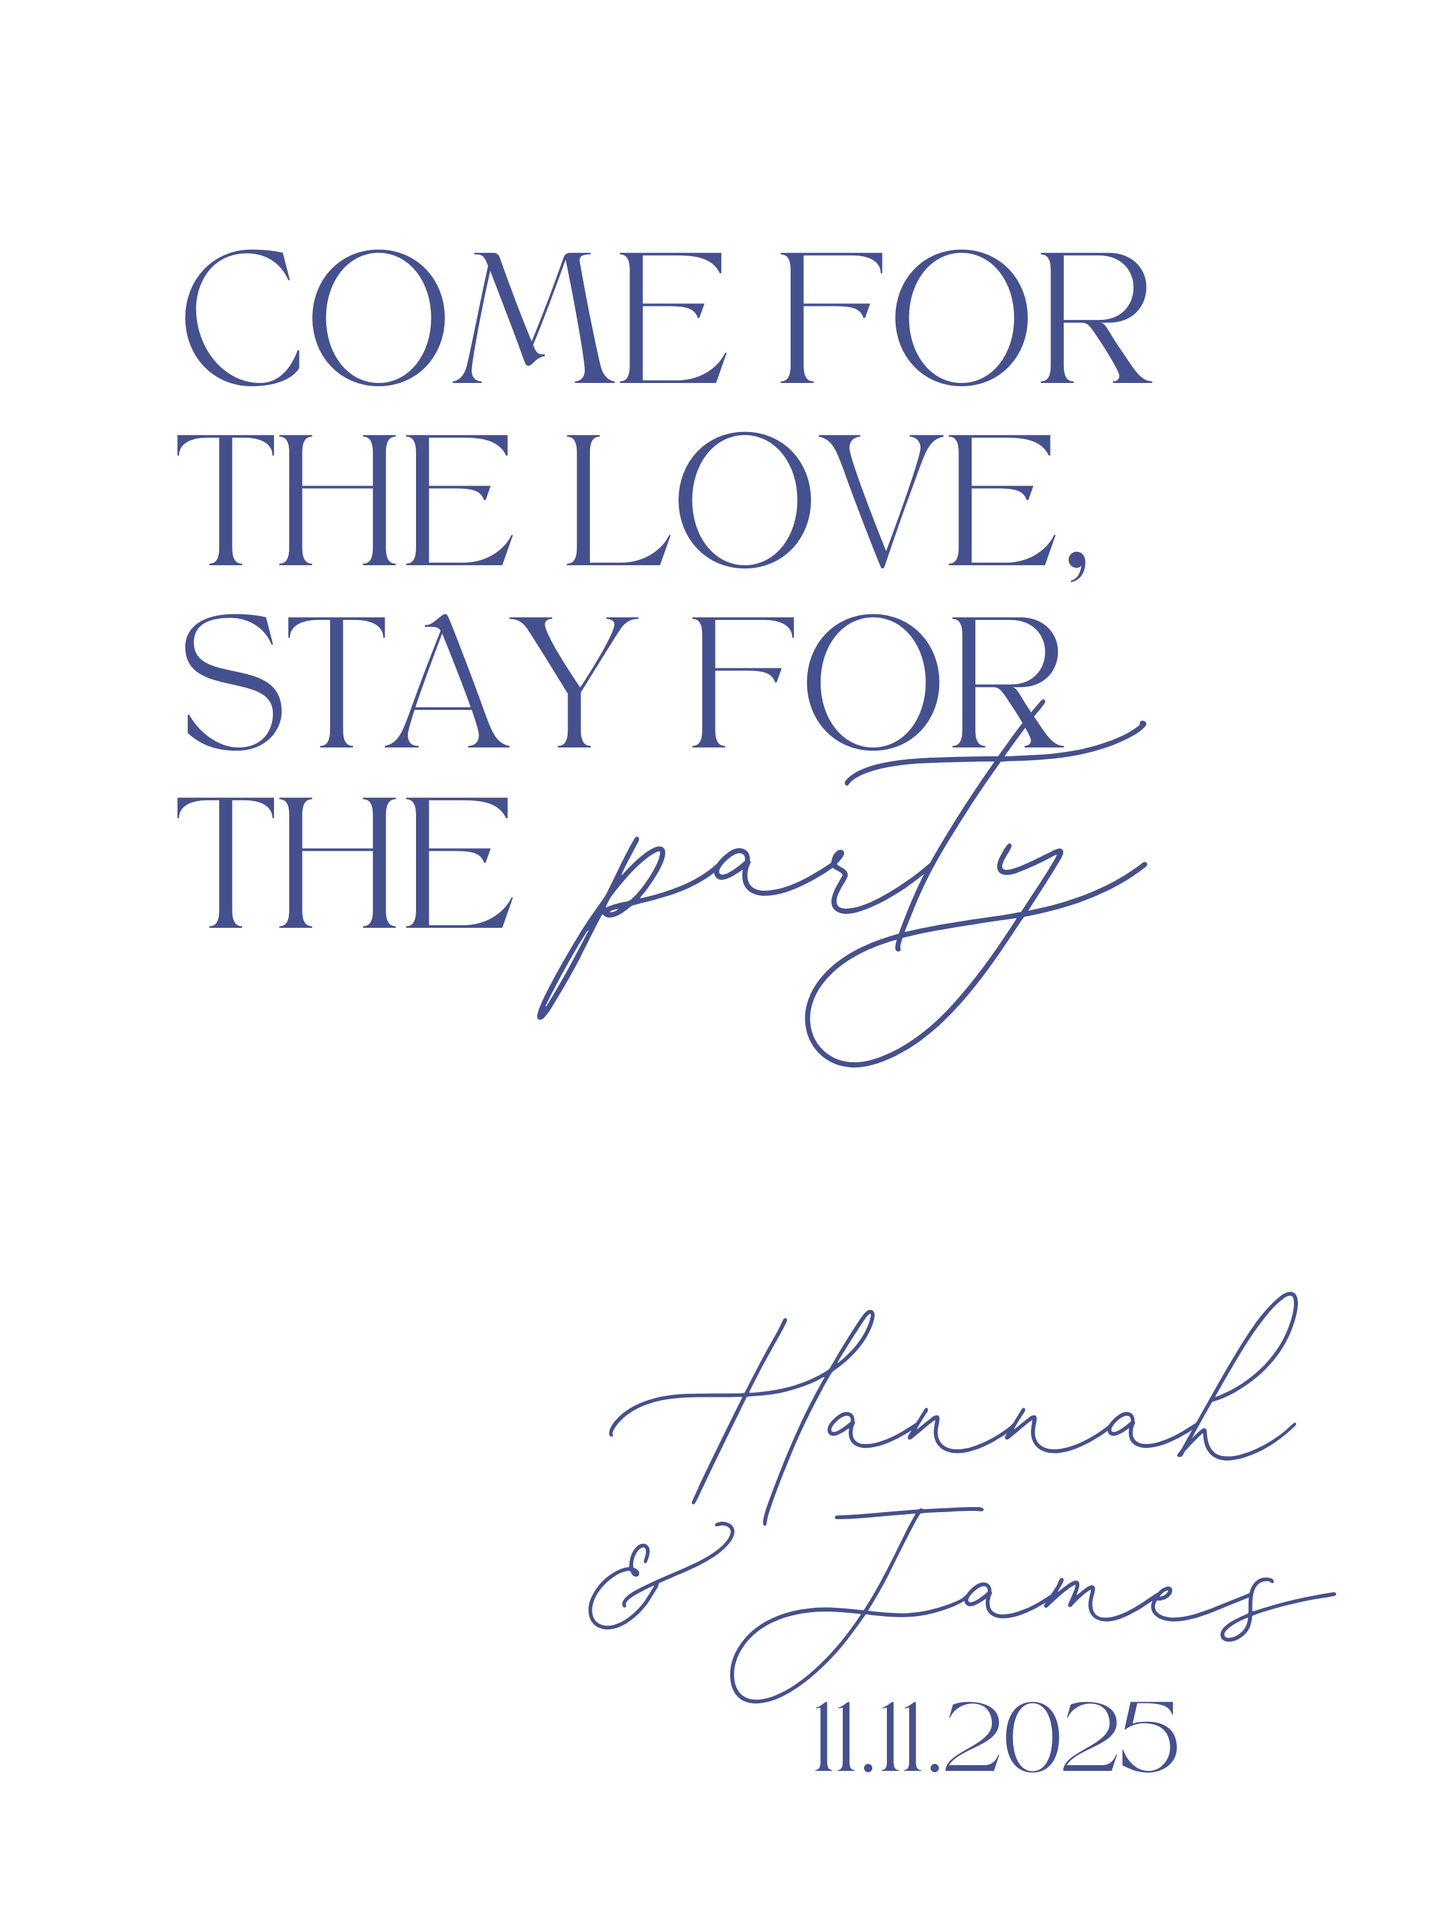 COME FOR
THE LOVE,
STAY FOR
THE party
Hannah
& James
11.11.2025